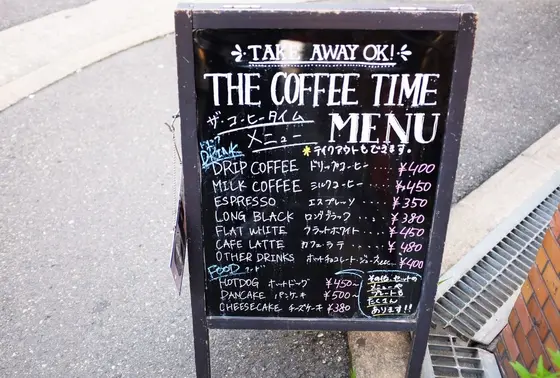 TAKE AWAY OK!
THE COFFEE TIME
ザ・コーヒータイム
メニュー MENU
ドリンク
DRINK
*テイクアウトもできます。
DRIP COFFEE ドリップコーヒー.... ¥400
MILK COFFEE ミルクコーヒー.... ¥450
ESPRESSO エスプレッソ .... ¥350
LONG BLACK ロングブラック.... ¥380
FLAT WHITE フラットホワイト.... ¥450
CAFE LATTE カフェ・ラテ.... ¥480
OTHER DRINKS ホットチョコレート・ジュースetc.. ¥400
FOOD フード
HOTDOG ホットドッグ ¥450~
PANCAKE パンケーキ ¥500~
CHEESECAKE チーズケーキ ¥380
その他、セットの
メニューや
プレートも
たくさん
あります!!